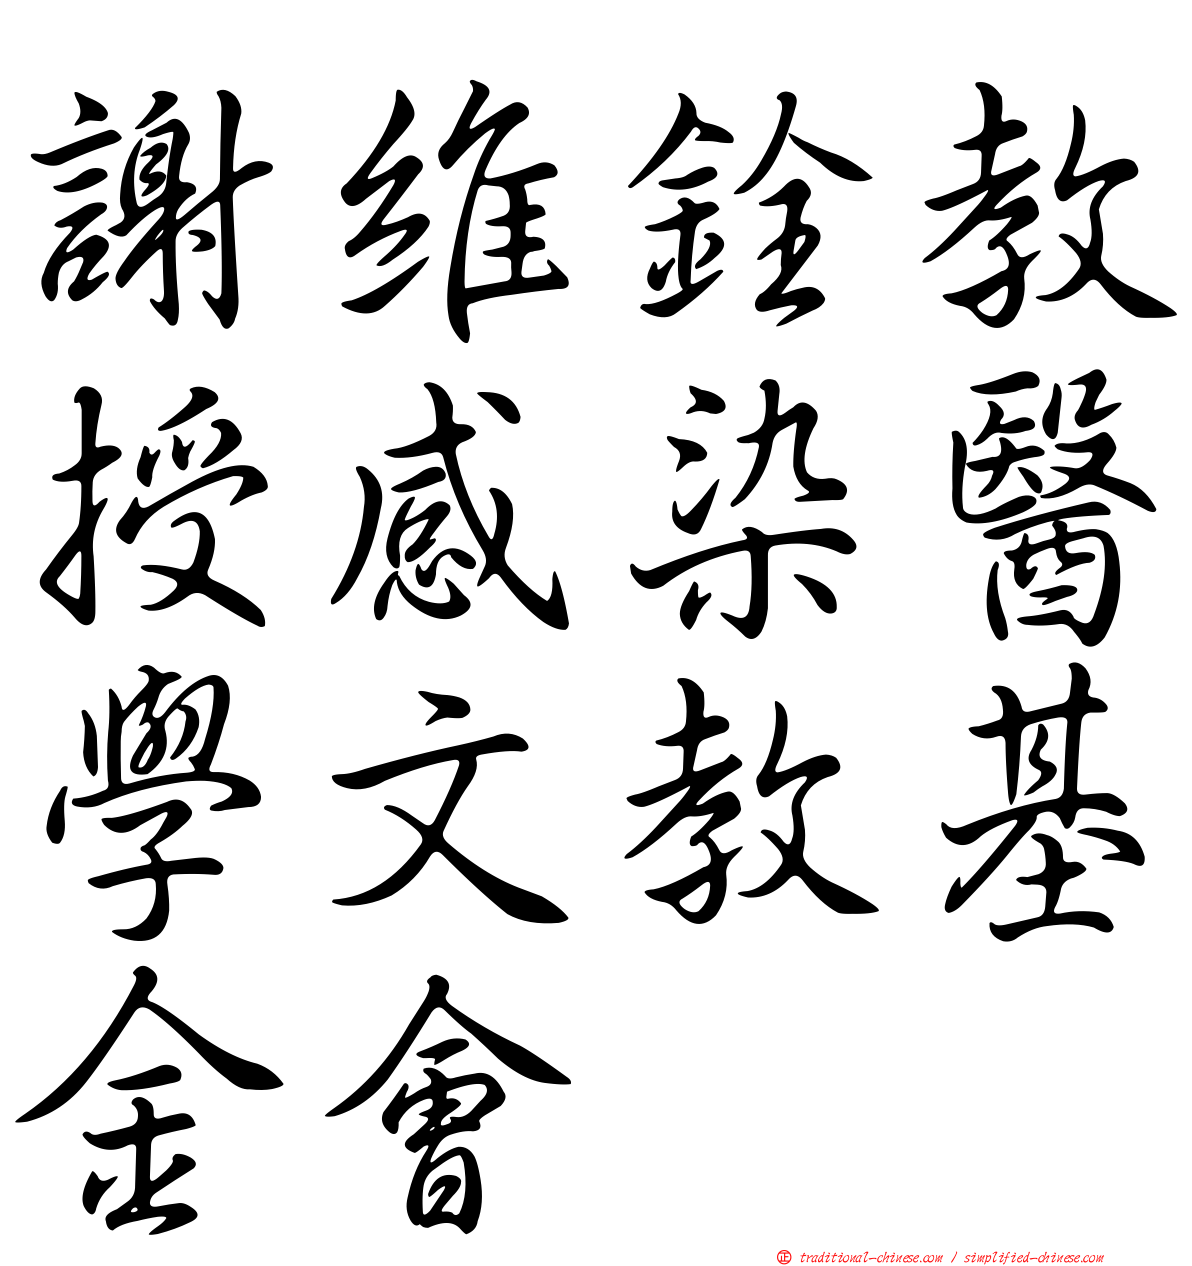 謝維銓教
授感染醫
學文教基
金會
㊣ traditional-chinese.com / simplified-chinese.com